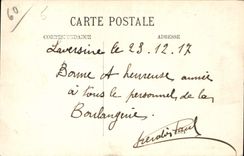 60
5
CARTE POSTALE
CORRESPONDANCE ADRESSE
Laversine le 23.12.17
Bonne et heureuse année
à tous le personnel de la
Boulangerie